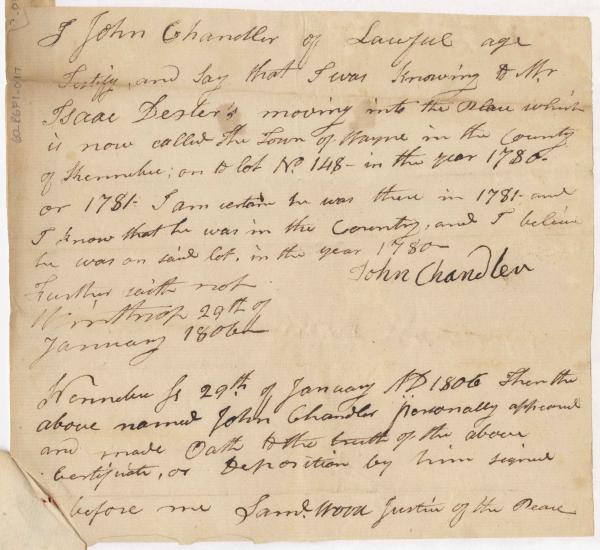 I John Chandler of Lawful age
Testify, and Say that I was Knowing to Mr
Isaac Dexter's moving into the Place which
is now called The Town of Wayne in the County
of Kennebec; on to lot No. 148- in the year 1780-
or 1781- I am certain he was there in 1781- and
I know that he was in the Country, and I believe
he was on said lot, in the year 1780-
John Chandler
Further saith not
Winthrop 29th of
January 1806
Kennebec Ss 29th of January AD 1806 Then the
above named John Chandler personally appeared
and made Oath to the truth of the above
Certificate, or Deposition by him signed
before me Saml. Wood Justice of the Peace